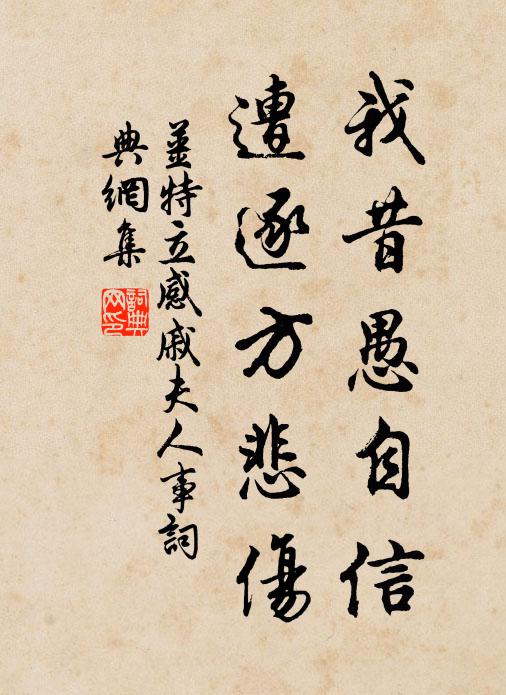 我昔愚自信
遭逐方悲傷
姜特立感戚夫人事詞
典網集
詞典網印